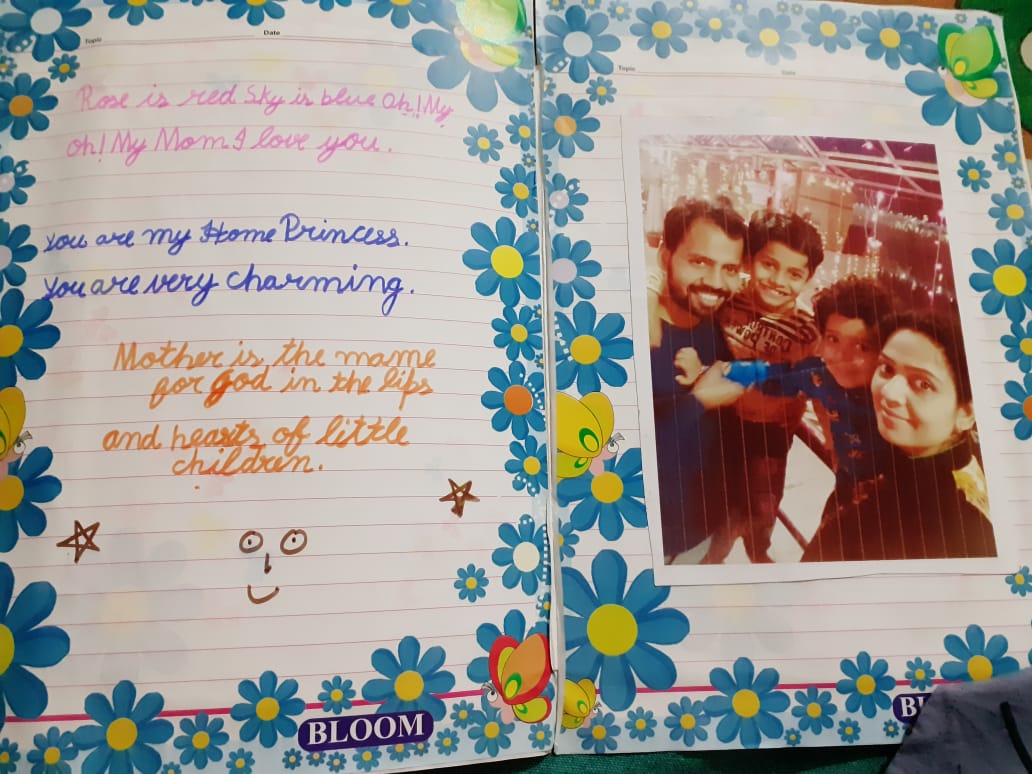 Topic Date
Rose is red Sky is blue Oh! My
oh! My Mom I love you.
You are my Home Princess.
You are very charming.
Mother is the mame
for god in the lips
and hearts of little
children.
BLOOM
Topic Date